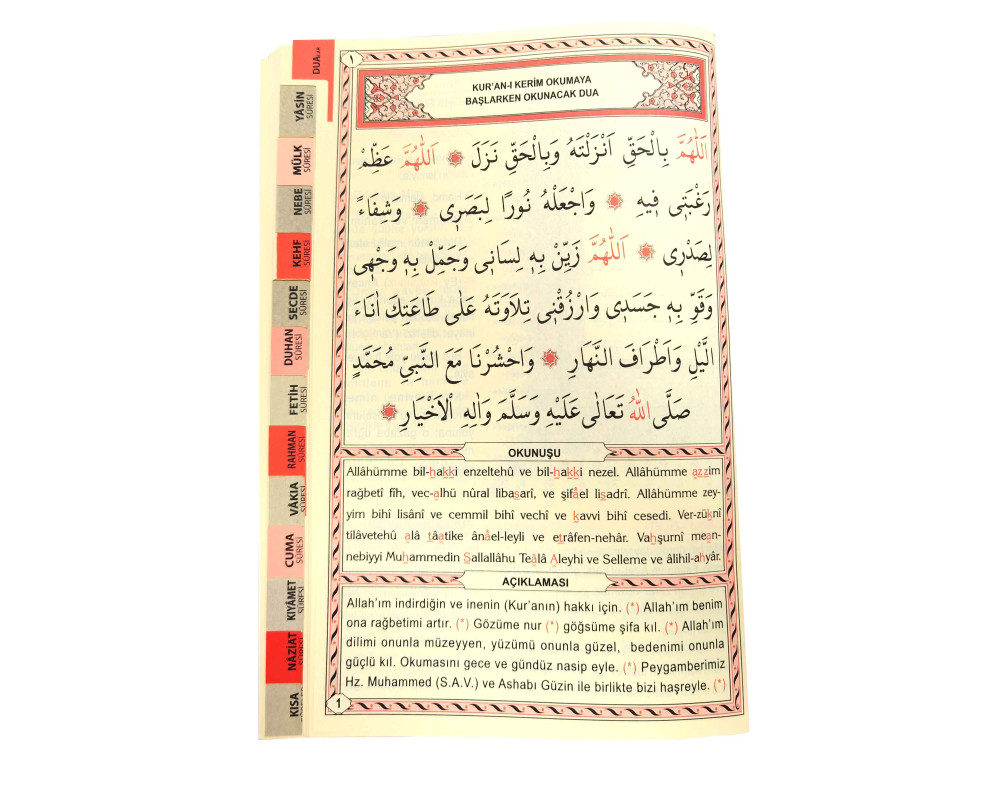 DUALAR
YÂSİN SÛRESİ
MÜLK SÛRESİ
NEBE SÛRESİ
KEHF SÛRESİ
SECDE SÛRESİ
DUHAN SÛRESİ
FETİH SÛRESİ
RAHMAN SÛRESİ
VÂKIA SÛRESİ
CUMA SÛRESİ
KIYÂMET SÛRESİ
NÂZİAT SÛRESİ
KISA
١
KUR'AN-I KERİM OKUMAYA
BAŞLARKEN OKUNACAK DUA
اَللّٰهُمَّ بِالْحَقِّ اَنْزَلْتَهُ وَبِالْحَقِّ نَزَلَ ۞ اَللّٰهُمَّ عَظِّمْ
رَغْبَتٖى فٖيهِ ۞ وَاجْعَلْهُ نُورًا لِبَصَرٖى ۞ وَشِفَاءً
لِصَدْرٖى ۞ اَللّٰهُمَّ زَيِّنْ بِهٖ لِسَانٖى وَجَمِّلْ بِهٖ وَجْهٖى
وَقَوِّ بِهٖ جَسَدٖى وَارْزُقْنٖى تِلَاوَتَهُ عَلٰى طَاعَتِكَ اٰنَاءَ
الَّيْلِ وَاَطْرَافَ النَّهَارِ ۞ وَاحْشُرْنَا مَعَ النَّبِىِّ مُحَمَّدٍ
صَلَّى اللّٰهُ تَعَالٰى عَلَيْهِ وَسَلَّمَ وَاٰلِهِ الْاَخْيَارِ ۞
OKUNUŞU
Allâhümme bil-hakki enzeltehû ve bil-hakki nezel. Allâhümme azzim
rağbetî fîh, vec-alhü nûral libasarî, ve şifâel lisadrî. Allâhümme zey-
yim bihî lisânî ve cemmil bihî vechî ve kavvi bihî cesedi. Ver-zûknî
tilâvetehû alâ tâatike ânâel-leyli ve etrâfen-nehâr. Vahşurnî mean-
nebiyyi Muhammedin Sallallâhu Teâlâ Aleyhi ve Selleme ve âlihil-ahyâr.
AÇIKLAMASI
Allah'ım indirdiğin ve inenin (Kur'anın) hakkı için. (*) Allah'ım benim
ona rağbetimi artır. (*) Gözüme nur (*) göğsüme şifa kıl. (*) Allah'ım
dilimi onunla müzeyyen, yüzümü onunla güzel, bedenimi onunla
güçlü kıl. Okumasını gece ve gündüz nasip eyle. (*) Peygamberimiz
Hz. Muhammed (S.A.V.) ve Ashabı Güzin ile birlikte bizi haşreyle. (*)
1